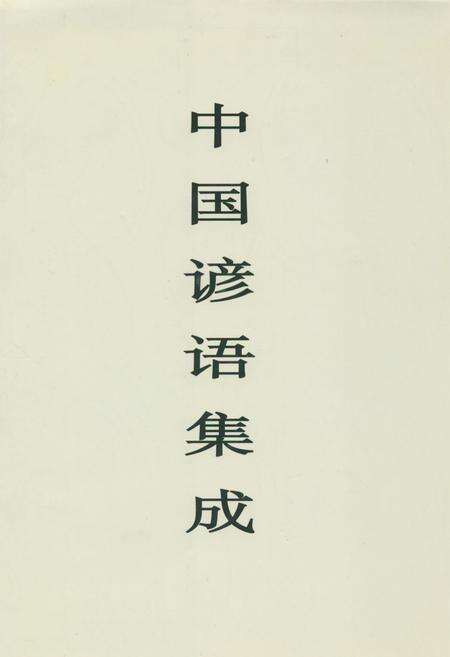 中国谚语集成